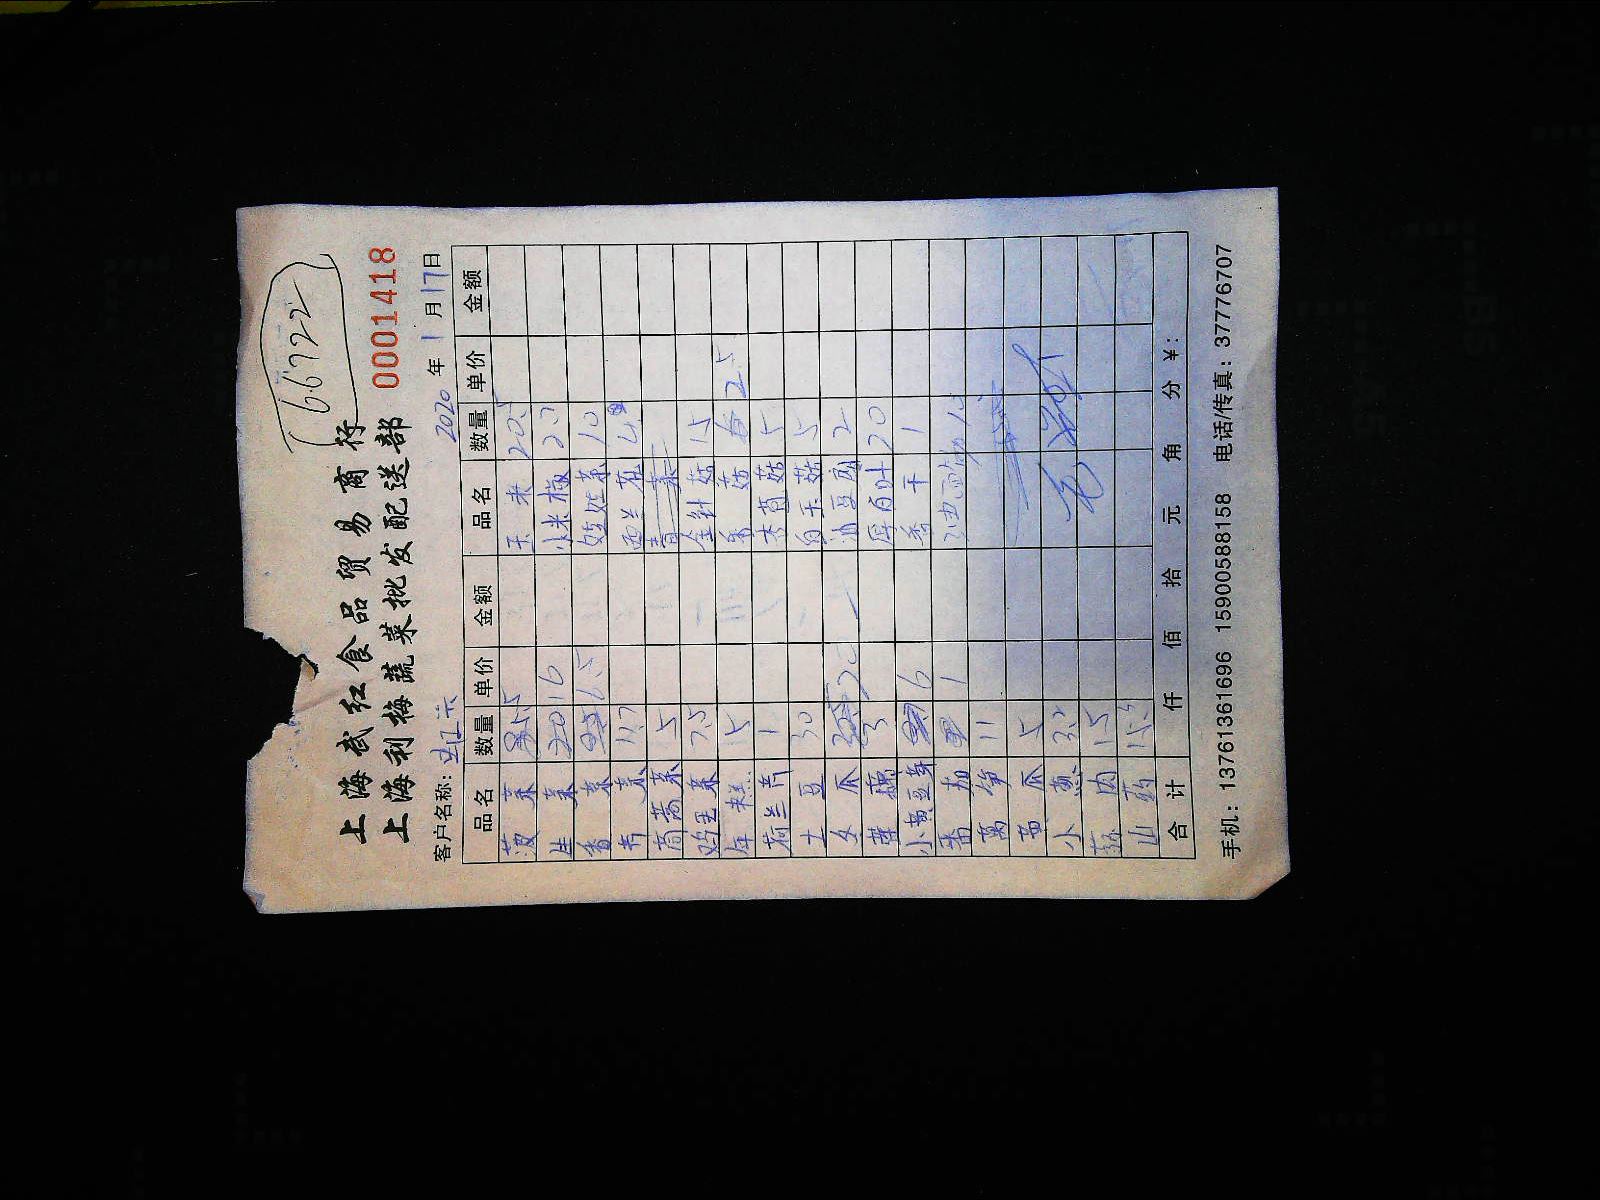 6.6722
上海武红食品贸易商行
上海利梅蔬菜批发配送部
0001418
客户名称: 2020 年 1 月 17 日
品名 数量 单价 金额 品名 数量 单价 金额
菠菜 5.5 玉米 20.5
生菜 16 小米椒 20
香菜 6.5 娃娃菜 10
芹菜 西兰花 4
茼蒿菜 5 青菜
鸡毛菜 7.5 金针菇 15
年糕 15 香菇 2.5
荷兰芹 1 杏苞菇 5
土豆 30 白玉菇 5
冬瓜 20 油豆腐 2
3 厚百叶 20
小黄豆芽 6 香干 1
番茄 1 油面筋 10
莴笋 11
瓜 5
小葱
肉 15
山药 15.5
合计 仟 佰 拾 元 角 分 ¥:
手机: 13761361696 15900588158 电话/传真: 37776707